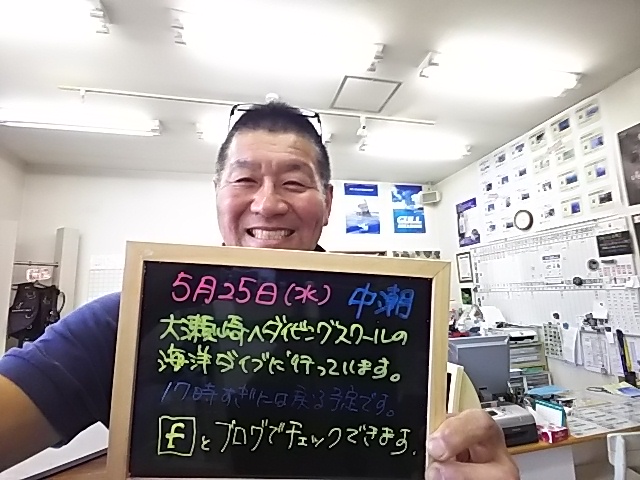 5月25日(水) 中潮
大瀬崎へダイビングスクールの
海洋ダイブに行っています。
17時すぎには戻る予定です。
fとブログでチェックできます。
GULL